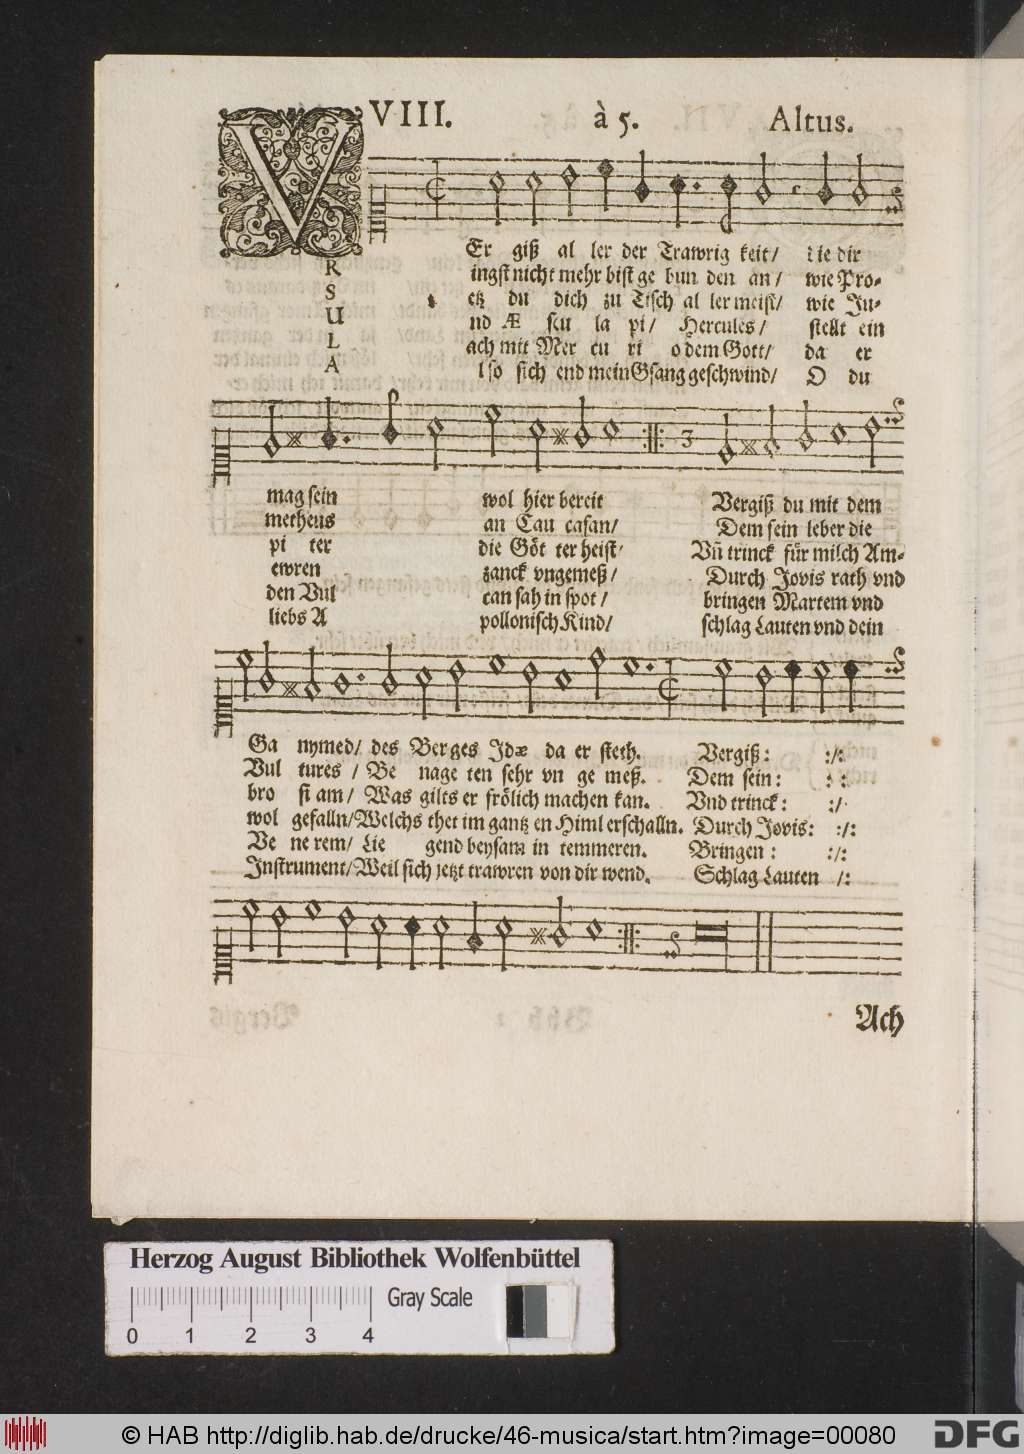 VIII. à 5. Altus.
V
Er giß al ler der Trawrig keit/ die dir
R ingst nicht mehr bist ge bun den an/ wie Pro-
S etz du dich zu Tisch al ler meist/ wie Ju-
U nd Æ scu la pi/ Hercules/ stellt ein
L ach mit Mer cu ri o dem Gott/ da er
A lso sich end mein Gsang geschwind/ O du
3
mag sein wol hier bereit Vergiß du mit dem
metheus an Cau casan/ Dem sein leber die
pi ter die Göt ter heist/ Vn̄ trinck für milch Am-
ewren zanck vngemeß/ Durch Jovis rath vnd
den Vul can sah in spot/ bringen Martem vnd
liebs A pollonisch Kind/ schlag Lauten vnd dein
Ga nymed/ des Berges Idæ da er steth. Vergiß: :/:
Vul tures/ Be nage ten sehr vn ge meß. Dem sein: : :
bro si am/ Was gilts er frölich machen kan. Vnd trinck: :/
wol gefalln/ Welchs thet im gantz en Himl erschalln. Durch Jovis: :/:
Ve ne rem/ Lie gend beysam in temmeren. Bringen: :/:
Instrument/ Weil sich jetzt trawren von dir wend. Schlag Lauten /:
Ach
Herzog August Bibliothek Wolfenbüttel
Gray Scale
0 1 2 3 4
© HAB http://diglib.hab.de/drucke/46-musica/start.htm?image=00080
DFG